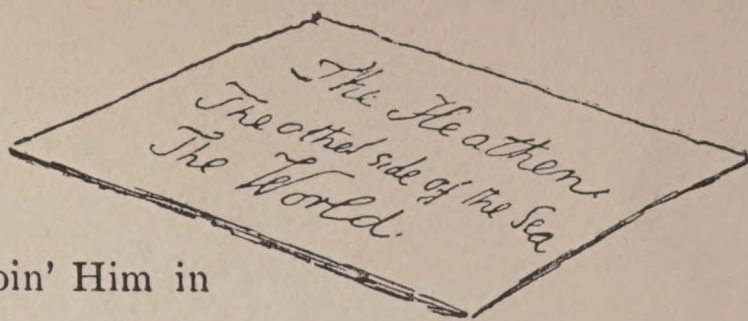 The Heathen
The other side of the Sea
The World.
oin' Him in